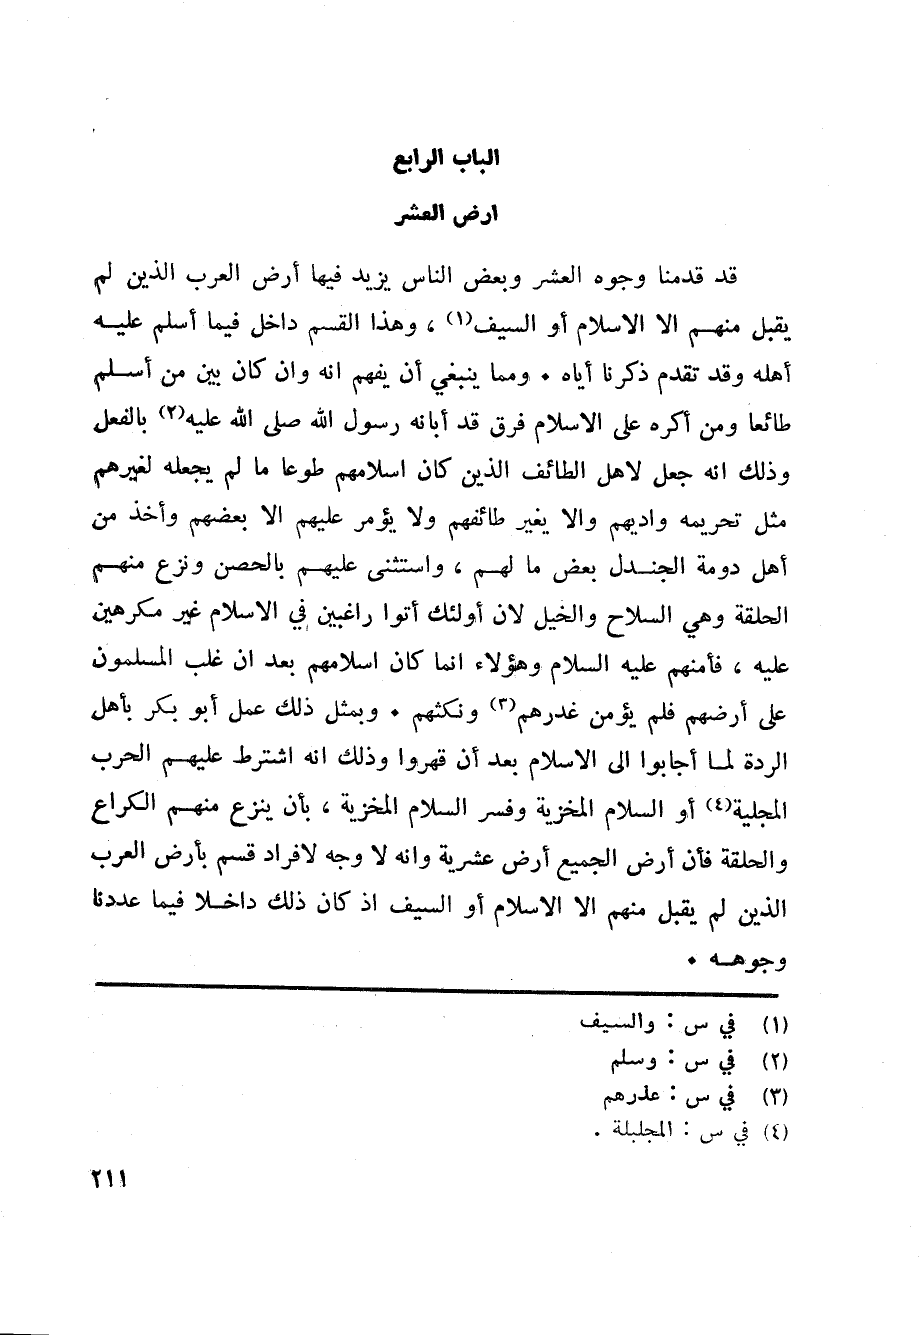 الباب الرابع
ارض العشر
قد قدمنا وجوه العشر وبعض الناس يزيد فيها أرض العرب الذين لم
يقبل منهم الا الاسلام أو السيف(١) ، وهذا القسم داخل فيما أسلم عليه
أهله وقد تقدم ذكرنا أياه • ومما ينبغي أن يفهم انه وان كان بين من أسلم
طائعا ومن أكره على الاسلام فرق قد أبانه رسول الله صلى الله عليه(٢) بالفعل
وذلك انه جعل لاهل الطائف الذين كان اسلامهم طوعا ما لم يجعله لغيرهم
مثل تحريمه واديهم والا يغير طائفهم ولا يؤمر عليهم الا بعضهم وأخذ من
أهل دومة الجندل بعض ما لهم ، واستثنى عليهم بالحصن ونزع منهم
الحلقة وهي السلاح والخيل لان أولئك أتوا راغبين في الاسلام غير مكرهين
عليه ، فأمنهم عليه السلام وهؤلاء انما كان اسلامهم بعد ان غلب المسلمون
على أرضهم فلم يؤمن غدرهم(٣) ونكثهم • وبمثل ذلك عمل أبو بكر بأهل
الردة لما أجابوا الى الاسلام بعد أن قهروا وذلك انه اشترط عليهم الحرب
المجلية(٤) أو السلام المخزية وفسر السلام المخزية ، بأن ينزع منهم الكراع
والحلقة فأن أرض الجميع أرض عشرية وانه لا وجه لافراد قسم بأرض العرب
الذين لم يقبل منهم الا الاسلام أو السيف اذ كان ذلك داخلا فيما عددنا
وجوهه •
(١) في س : والسيف
(٢) في س : وسلم
(٣) في س : عذرهم
(٤) في س : المجلبلة .
٢١١